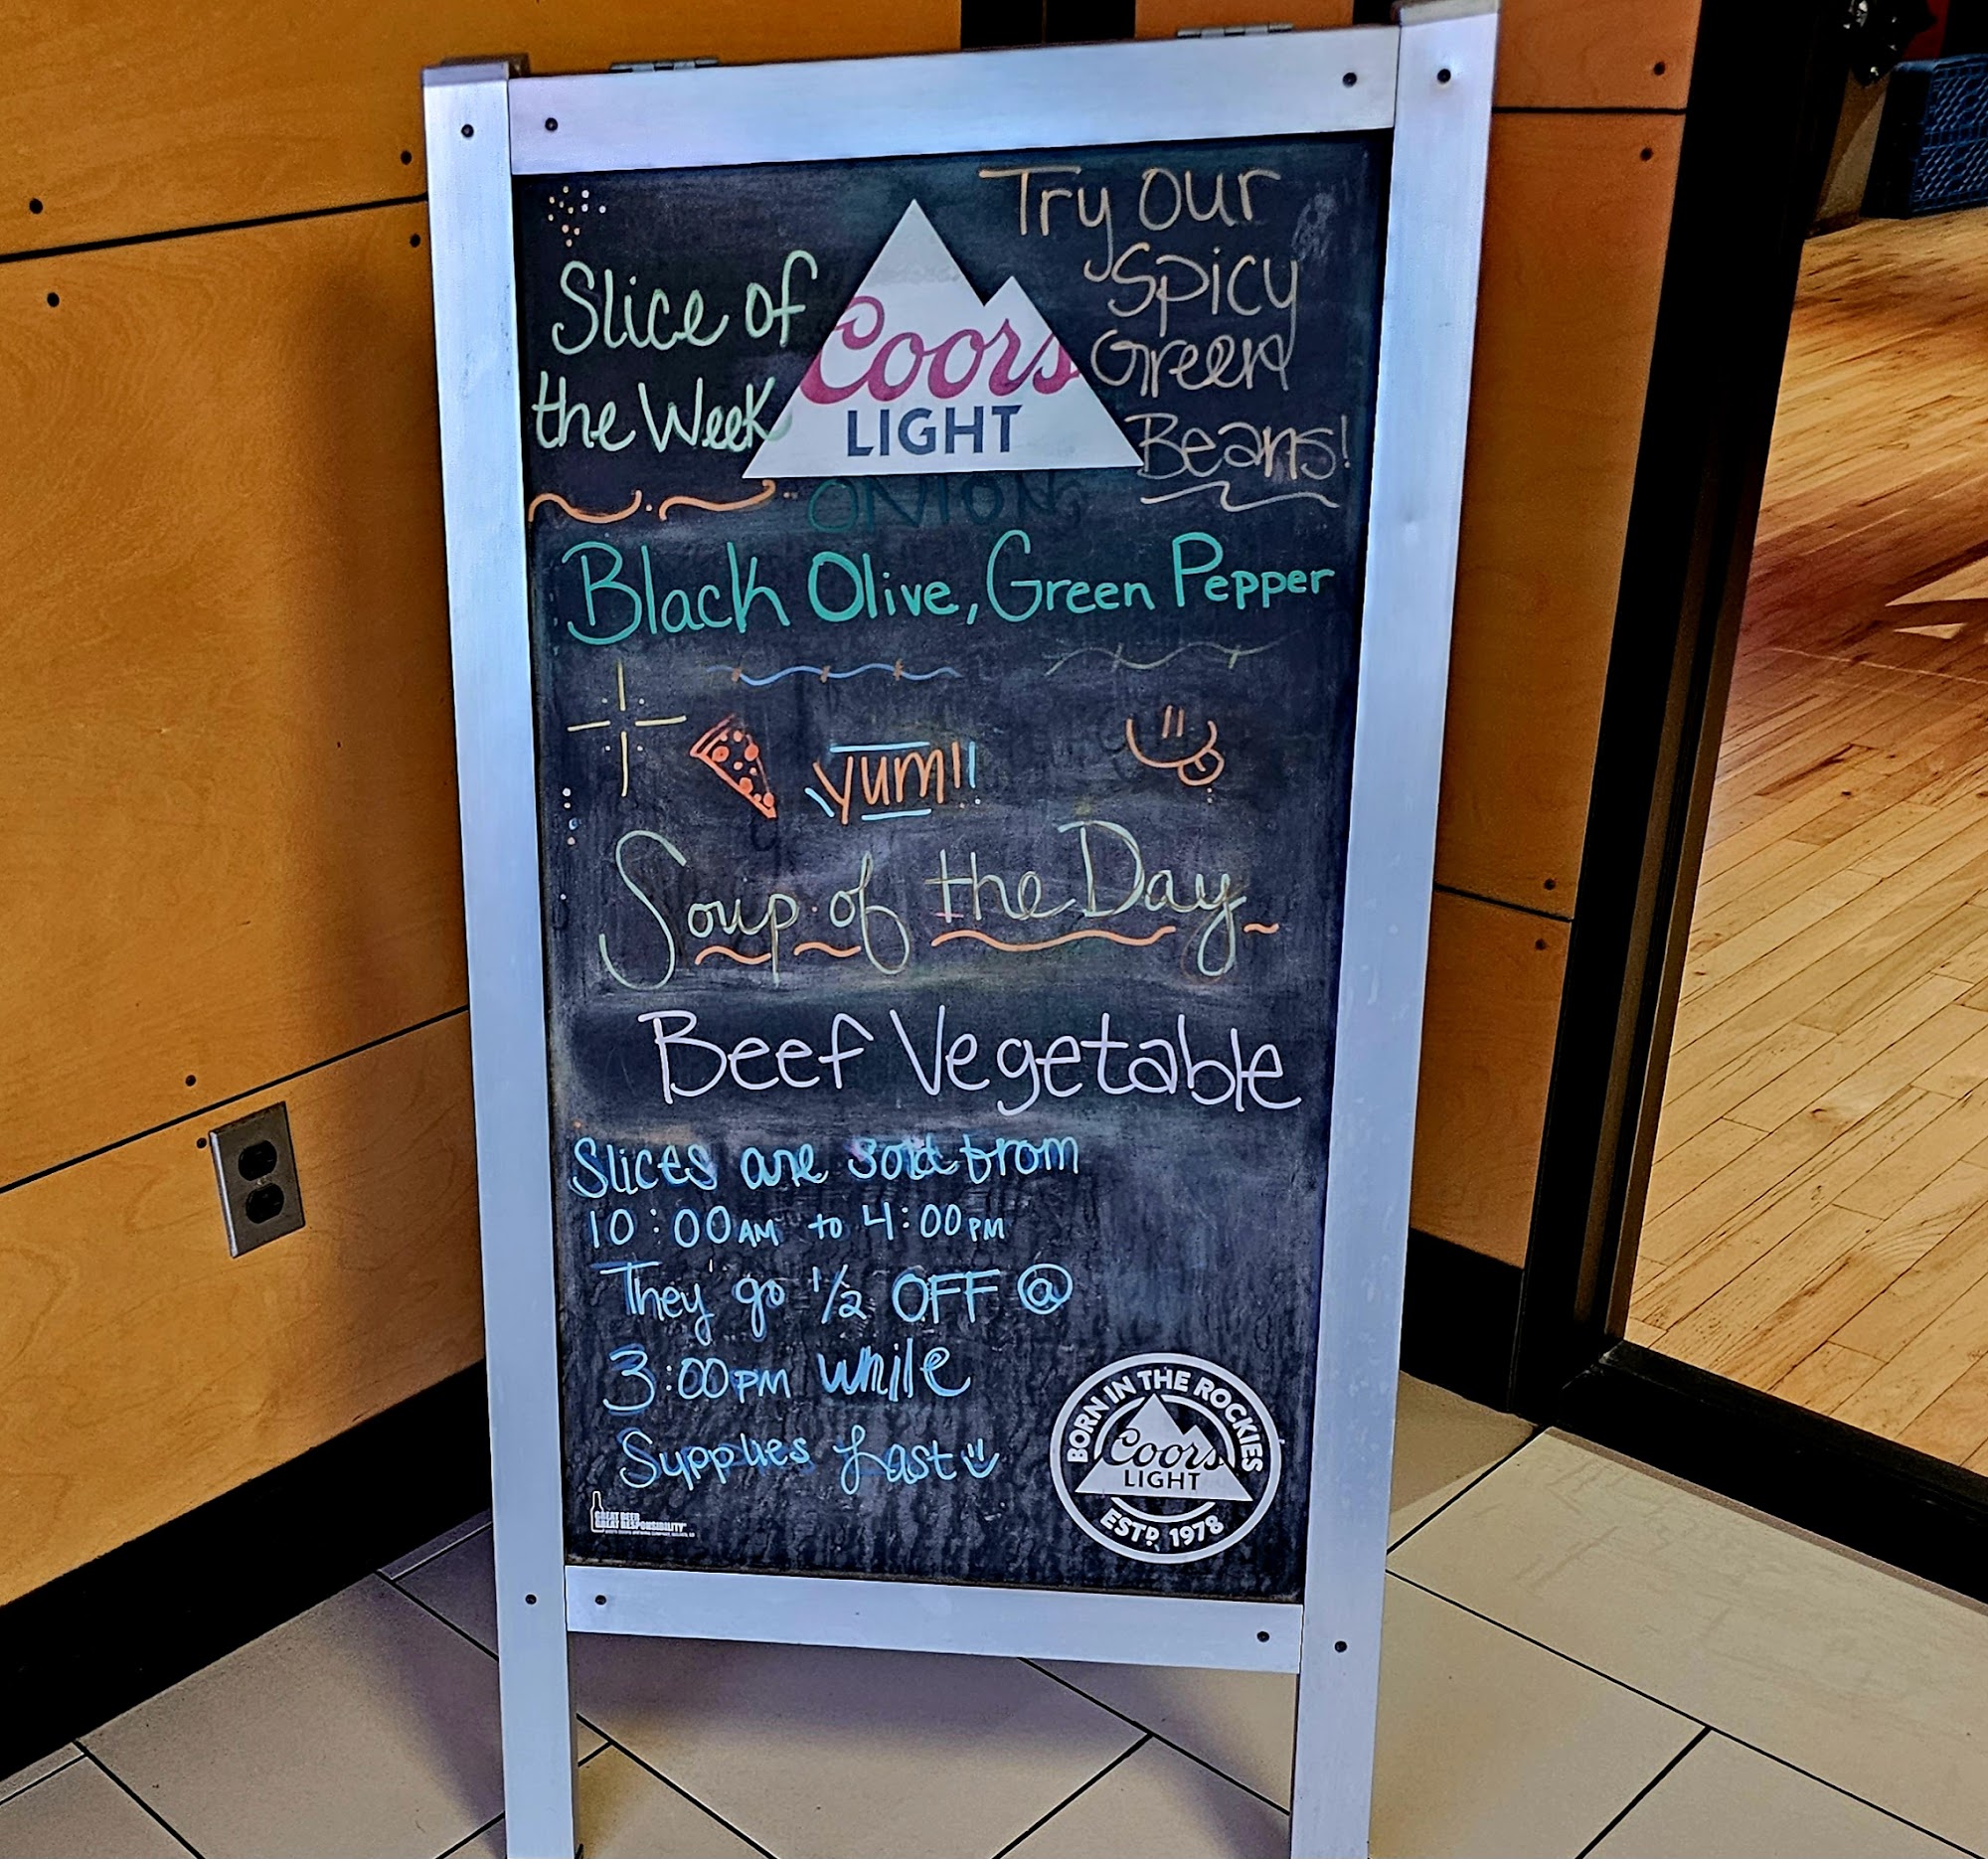 Slice of
the Week
Coors
LIGHT
Try our
Spicy
Green
Beans!
ONIONS
Black Olive, Green Pepper
yum!!
Soup of the Day
Beef Vegetable
Slices are sold from
10:00AM to 4:00PM
They go 1/2 OFF @
3:00PM while
Supplies Last
BORN IN THE ROCKIES
Coors
LIGHT
ESTD. 1978
GREAT BEER
GREAT RESPONSIBILITY